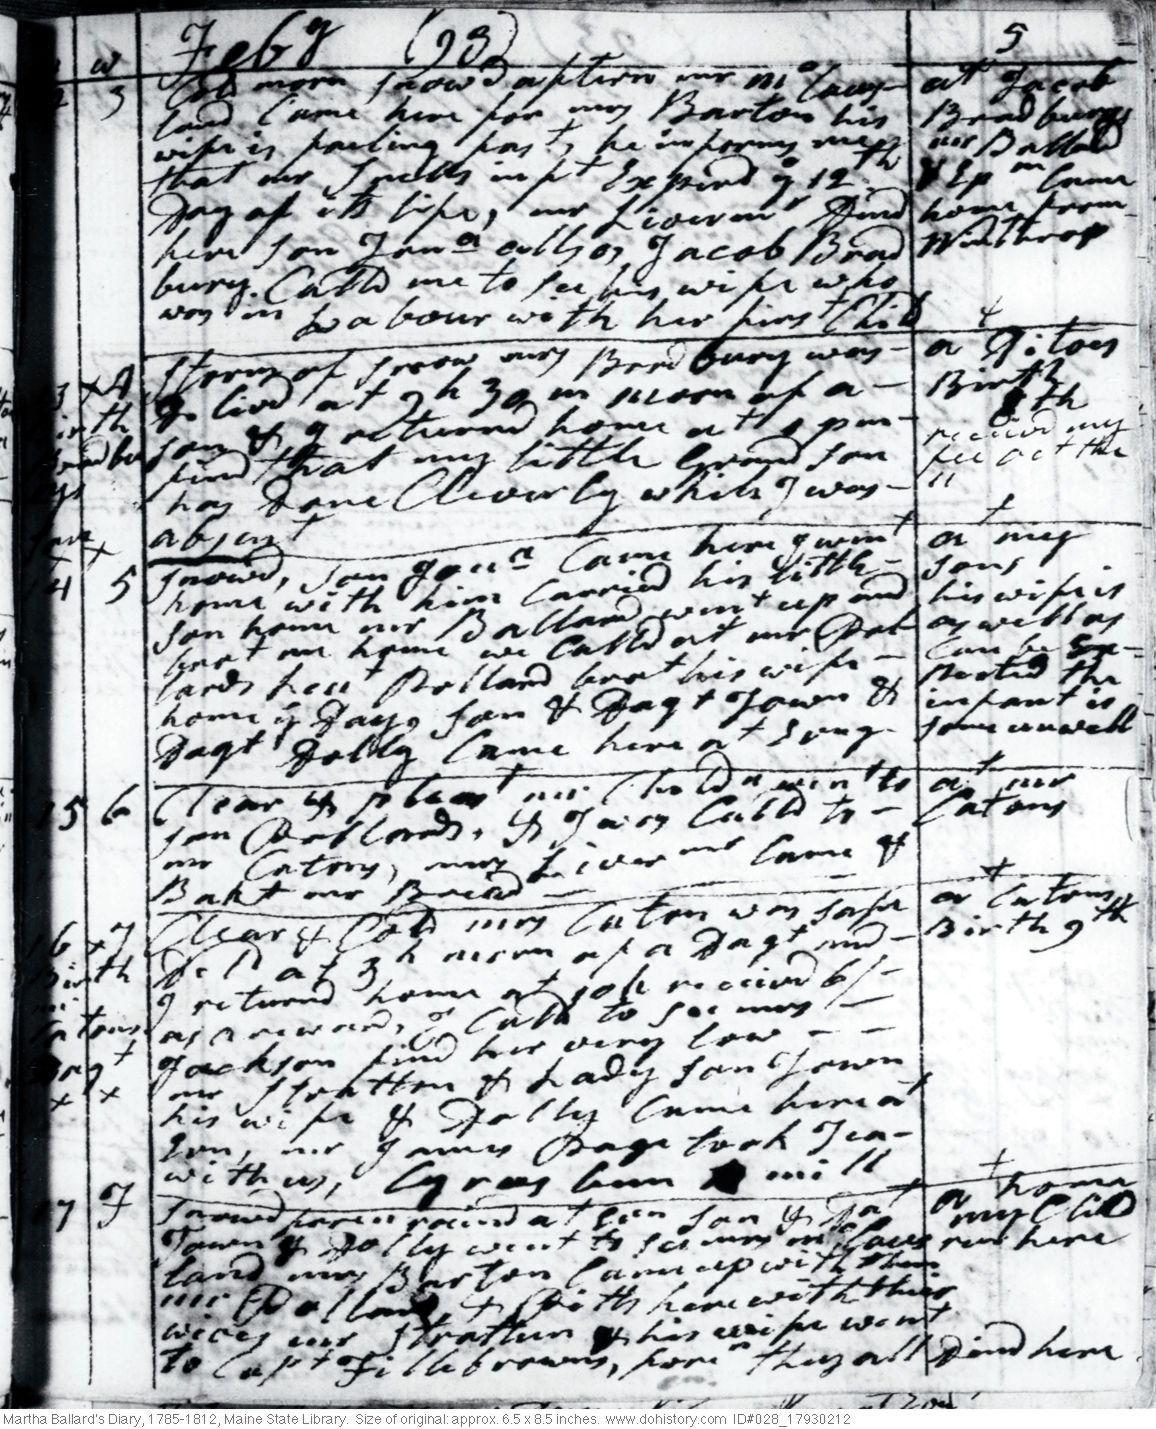 w FebY (93) 5
3 Cold morn Snowd aptern mr mcCaus-
land Came here for mrs Barton his
wife is failing fast, he informs me
that mr Snells inft Expird ye 12th
Day of its life, mr Livermr Dind
here Son Jona allso, Jacob Brad
bury Calld me to See his wife who
was in Labour with her first Child
at Jacob
Bradburys
mr Ballard
& Epm Came
home from
Winthrop
4
Storm of Snow mrs Bradbury was
Delivd at 2h 30 m morn of a
Son & I returned home at 1 pm
find that my little Grand Son
has Done Cleverly while I was
absent
at Ditoes
Birth
8th
receivd my
fee oct the
11
Birth
x x
14 5 Snowd, Son Jona Came here I went
home with him Carried his little
Son home mr Ballard went up and
brot me home we Calld at mr Pol
lards Leut Pollard brot his wife
home ys Day, Son & Dagt Town &
Dagt Dolly Came here at Evng
at my
Sons
his wife is
as well as
Can be Ex-
pected the
infant is
some unwell
15 6 Clear & pleast mr Ballard went to
Son Pollards, & I was Calld to
mr Catons, mrs Livermr Came &
Bakt our Bread
at mr
Catons
16 x 7 Clear & Cold mrs Caton was safe
Delt at 3h morn of a Dagt and
I returned home at 10h receivd 6/
as a reward, I Calld to See mrs
Jackson find her very low
mr Stratten & Lady Son Town
his wife & Dolly Came here at
Evn, mr James Page took Tea
with us, Cyrus from mill
at Catons
Birth 9th
Birth
mr
Catons
Dagt
x x
17 F Snowd foren raind at Evn Son & Dat
Town & Dolly went to See mrs mcCaus
land mrs Barton Came up with them
mr Pollard & Pitts here with their
wives mr Stratten & his wife went
to Capt Fillebrowns, foren they all Dind here
at home
my Child
ren here
Martha Ballard's Diary, 1785-1812, Maine State Library. Size of original: approx. 6.5 x 8.5 inches. www.dohistory.com ID#028_17930212